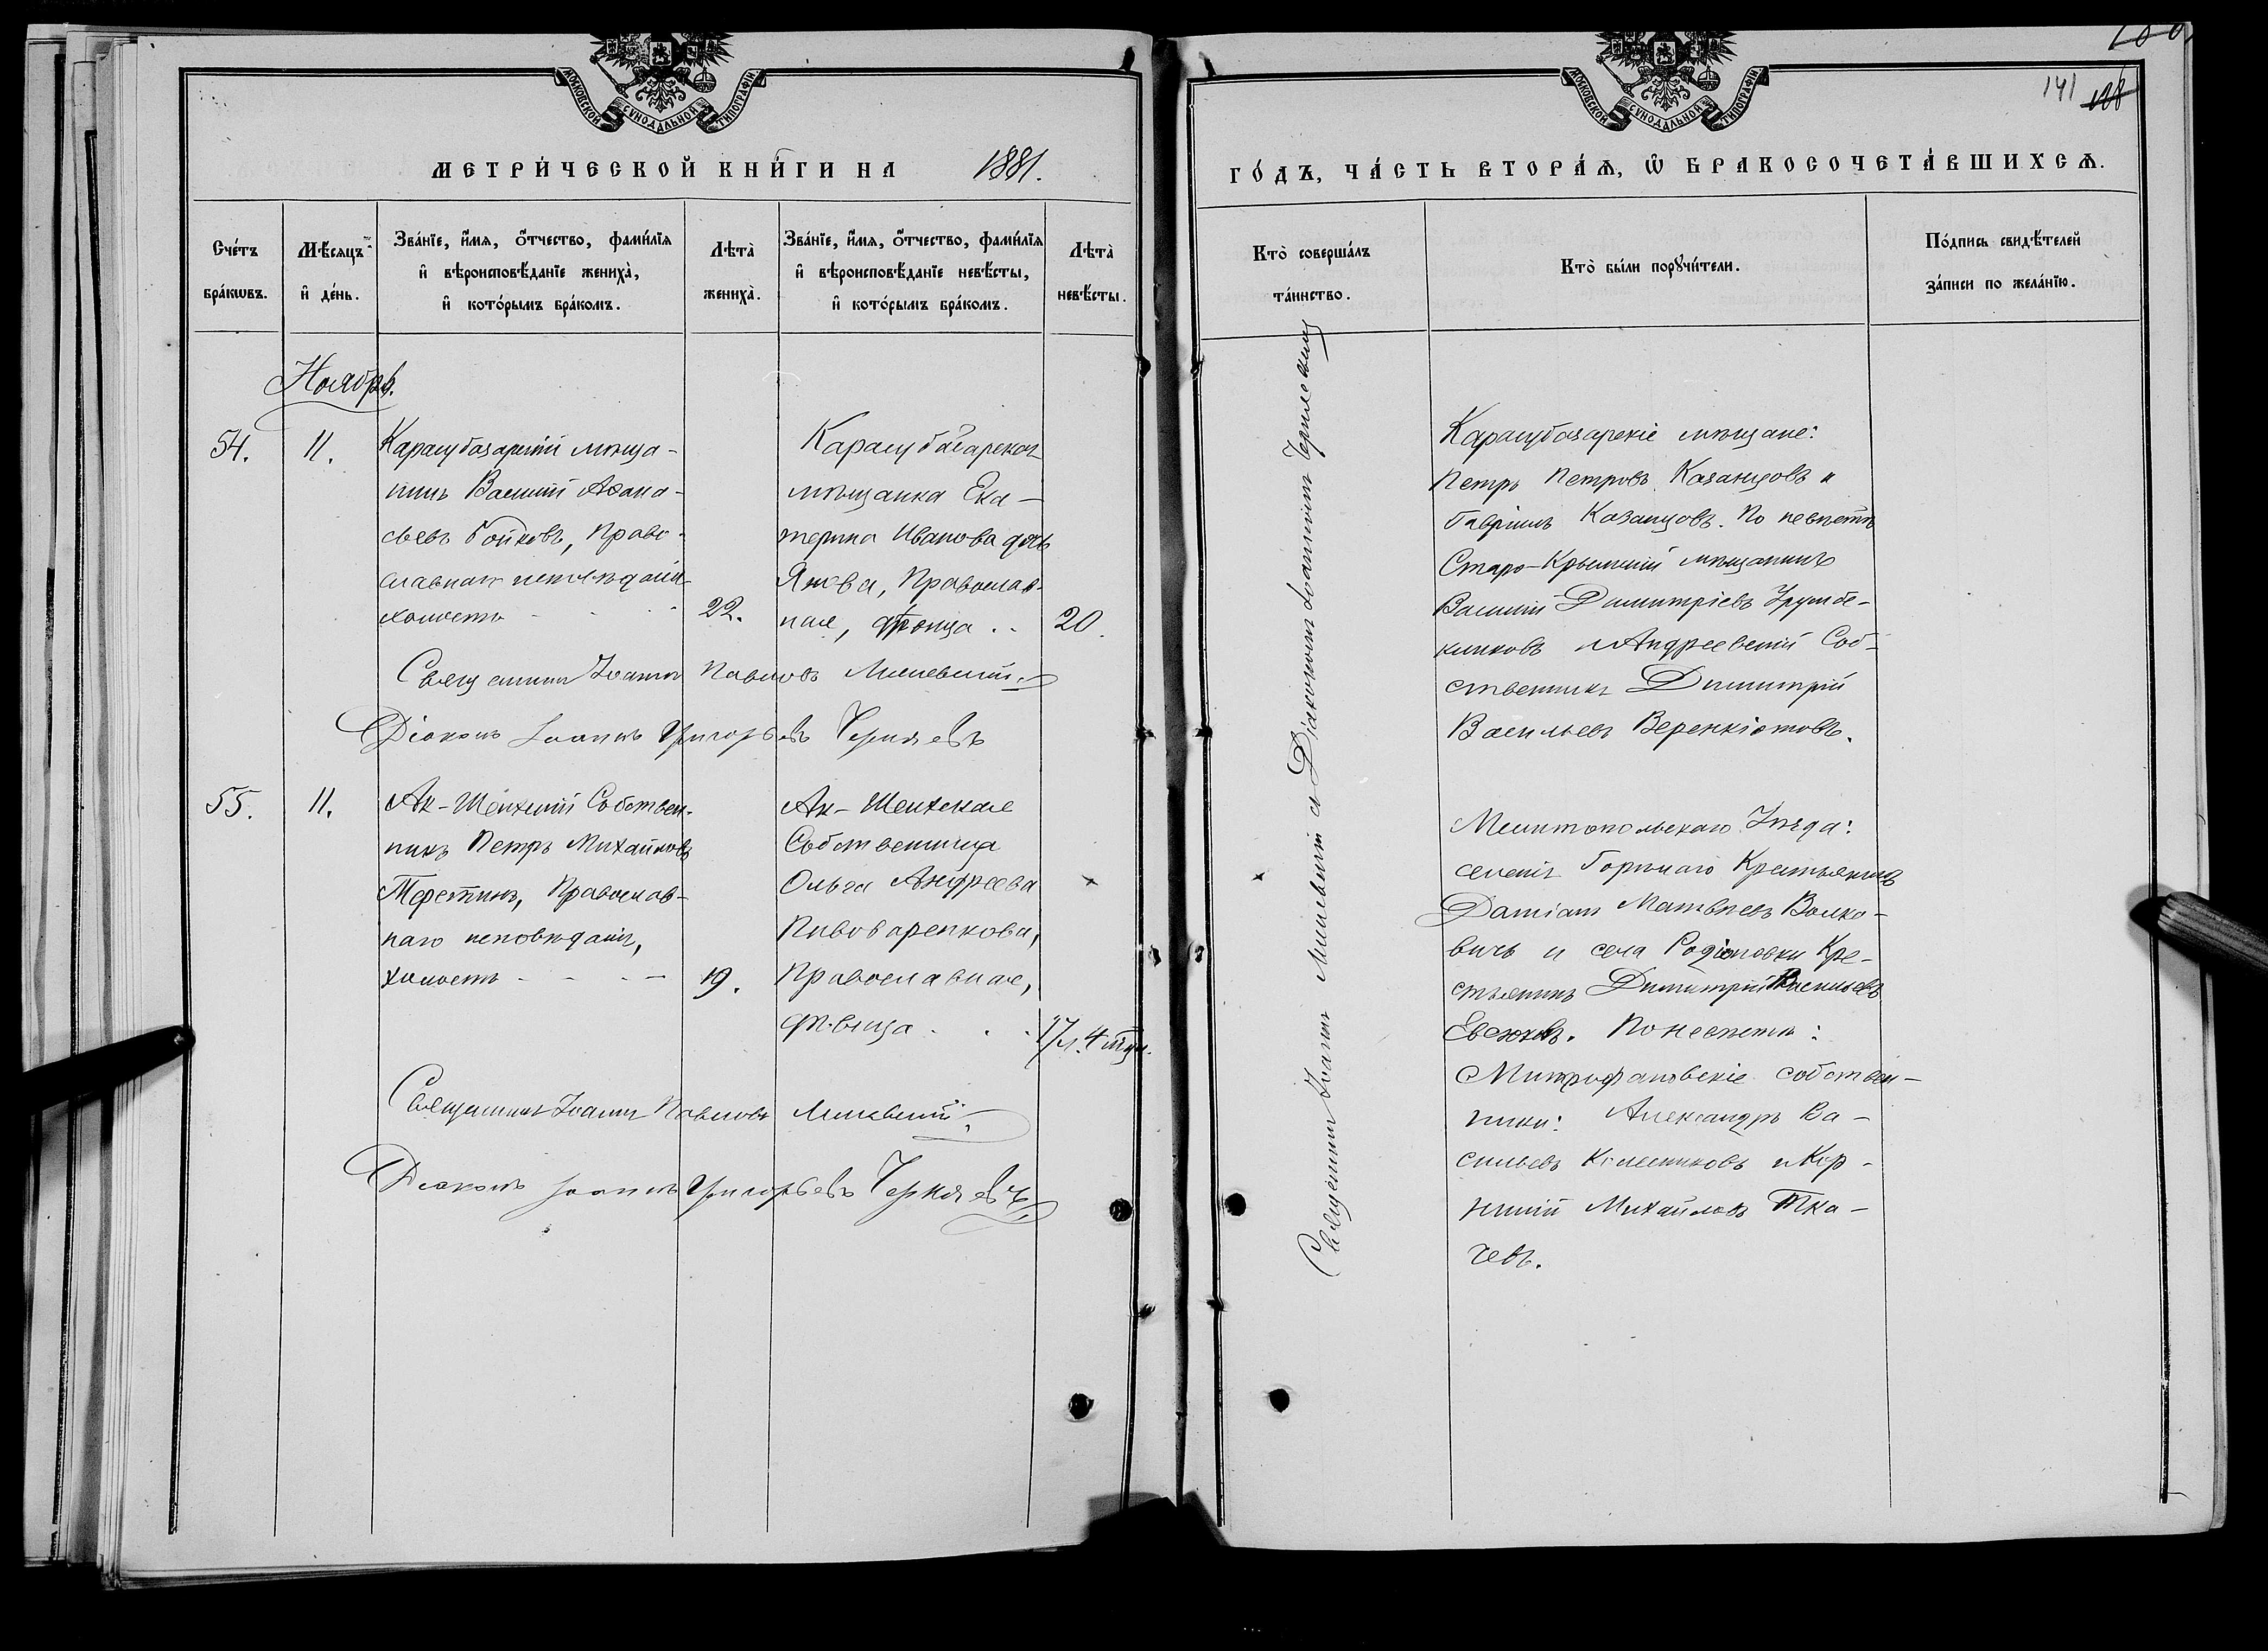 МОСКОВСКОЙ СУНОДАЛЬНОЙ ТИПОГРАФІИ
МЕТРИ́ЧЕСКОЙ КНИ́ГИ НА 1881.
Сче́тъ бра́кѡвъ.
Мѣ́сяцъ и҆ де́нь.
Зва́нїе, и҆́мѧ, ѻ҆́тчество, фами́лїѧ
и҆ вѣроисповѣ́данїе жениха̀,
и҆ кото́рымъ бра́комъ.
Лѣта̀ жениха̀.
Зва́нїе, и҆́мѧ, ѻ҆́тчество, фами́лїѧ
и҆ вѣроисповѣ́данїе невѣ́сты,
и҆ кото́рымъ бра́комъ.
Лѣта̀ невѣ́сты.
Ноябрь.
54.
11.
Карасубазарскій мѣща-
нинъ Василій Аѳана-
сьевъ Бойковъ, Право-
славнаго исповѣданія
холостъ
22.
Карасубазарская
мѣщанка Ека-
терина Иванова дочь
Православ-
ная, дѣвица
20.
Священникъ Іоаннъ Павловъ
Діаконъ Іоаннъ Григорьевъ Черняевъ
55.
11.
Ак-Шеихскій Собствен-
никъ Петръ Михайловъ
Терстинъ, Православ-
наго исповѣданія,
холостъ
19.
Ак-Шеихская
Собственница
Ольга Андреева
Пивоваренкова,
Православная,
дѣвица
17 л. 4 м.
Священникъ Іоаннъ Павловъ
Діаконъ Іоаннъ Григорьевъ Черняевъ
МОСКОВСКОЙ СУНОДАЛЬНОЙ ТИПОГРАФІИ
141
ГО́ДЪ, ЧА́СТЬ ВТОРА́Ѧ, Ѡ҆ БРАКОСОЧЕТА́ВШИХСѦ.
Кто̀ соверша́лъ та́инство.
Кто̀ бы́ли порꙋчи́тели.
По́дпись свидѣ́телей за́писи по жела́нїю.
Священникъ Іоаннъ съ Діакономъ Іоанномъ
Карасубазарскіе мѣщане:
Петръ Петровъ Казанцовъ и
Гавріилъ Казанцовъ. По невѣстѣ
Старо-Крымскій мѣщанинъ
Василій Димитріевъ
и Андреевскій Соб-
ственникъ Димитрій
Васильевъ Веренкіотовъ.
Мелитопольскаго Уѣзда:
селенія Горѣлаго Крестьянинъ
Даміанъ Матвѣевъ Волко-
вичъ и села Родіоновки Кре-
стьянинъ Димитрій Васильевъ
Евсюковъ. По невѣстѣ:
Митрофановскіе собствен-
ники: Александръ Ва-
сильевъ Колесниковъ и Кор-
нилій Михайловъ Тка-
чевъ.